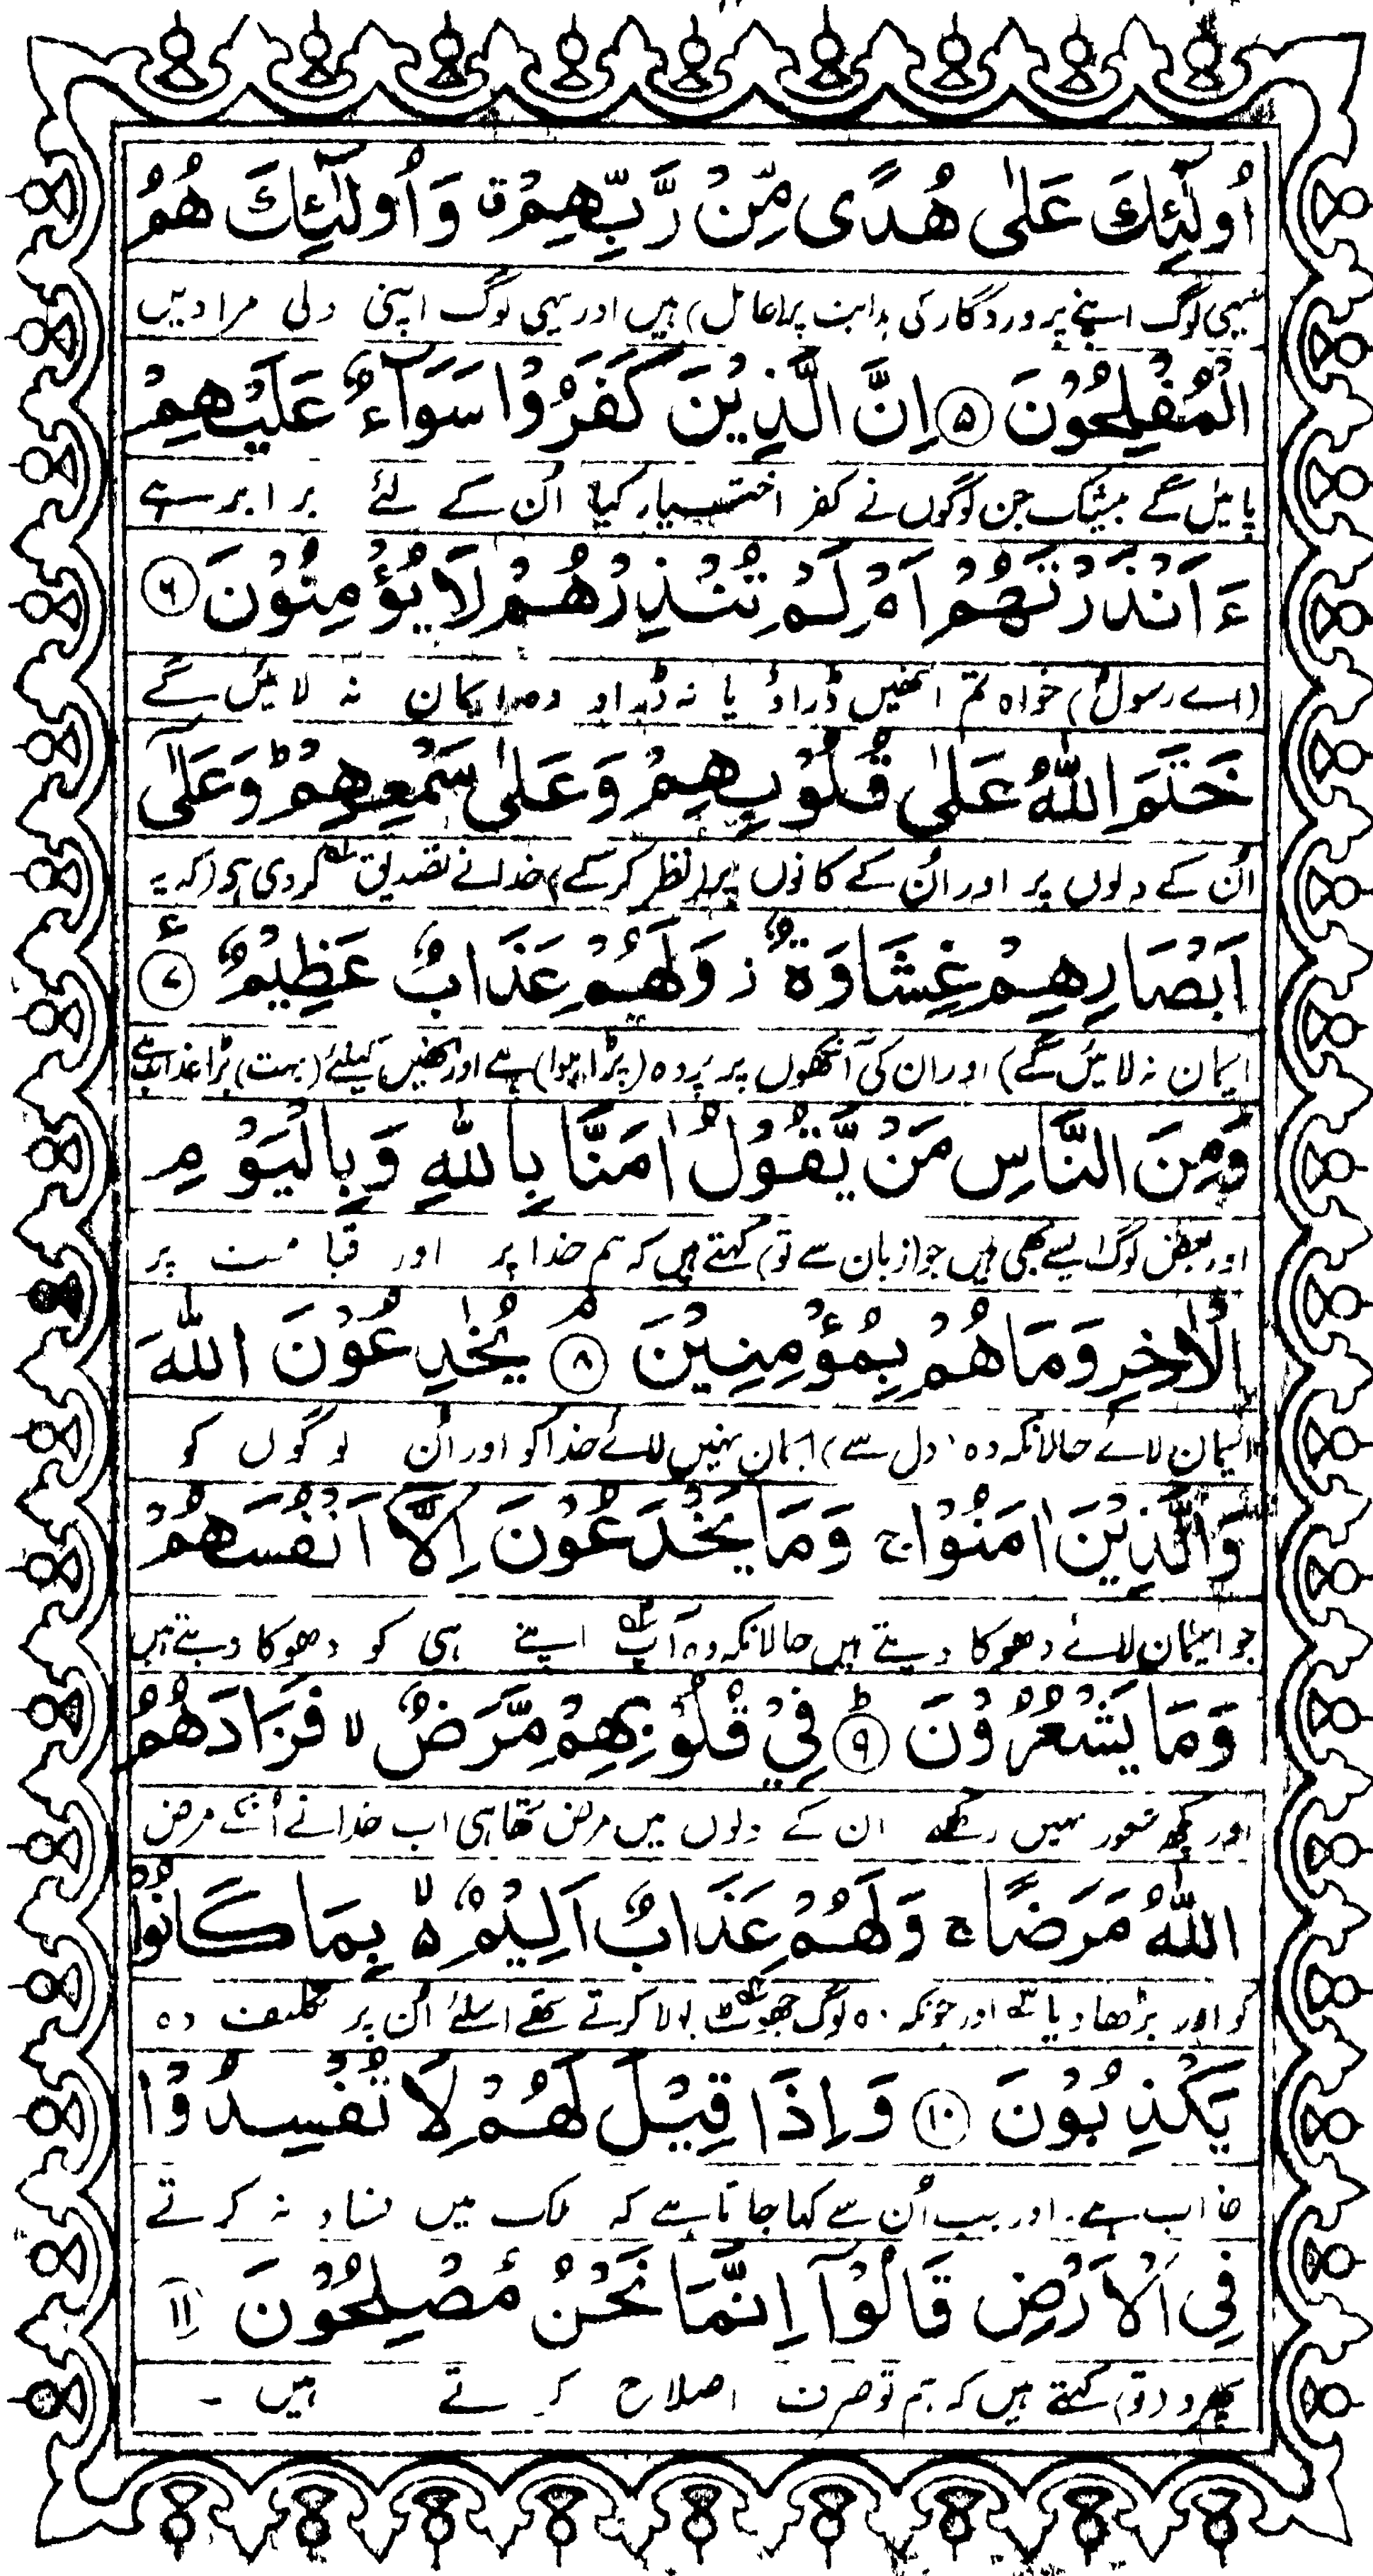 اُولٰٓئِكَ عَلٰى هُدًى مِّنْ رَّبِّهِمْ ق وَ اُولٰٓئِكَ هُمُ
یہی لوگ اپنے پروردگار کی ہدایت پر (عامل) ہیں اور یہی لوگ اپنی دلی مرادیں
الْمُفْلِحُوْنَ ۵ اِنَّ الَّذِيْنَ كَفَرُوْا سَوَآءٌ عَلَيْهِمْ
پائیں گے بیشک جن لوگوں نے کفر اختیار کیا اُن کے لئے برابر ہے
ءَاَنْذَرْتَهُمْ اَمْ لَمْ تُنْذِرْهُمْ لَا يُؤْمِنُوْنَ ۶
(اے رسولؐ) خواہ تم انھیں ڈراؤ یا نہ ڈراؤ وہ ایمان نہ لائیں گے
خَتَمَ اللّٰهُ عَلٰى قُلُوْبِهِمْ وَعَلٰى سَمْعِهِمْ ط وَعَلٰٓى
اُن کے دلوں پر اور اُن کے کانوں پر (نظر کر کے) خدا نے تصدیق کر دی ہے (کہ یہ
اَبْصَارِهِمْ غِشَاوَةٌ ز وَّلَهُمْ عَذَابٌ عَظِيْمٌ ۷ ع
ایمان نہ لائیں گے) اور ان کی آنکھوں پر پردہ (پڑا ہوا) ہے اور انھیں کیلئے (بہت) بڑا عذاب ہے
وَمِنَ النَّاسِ مَنْ يَّقُوْلُ اٰمَنَّا بِاللّٰهِ وَبِالْيَوْمِ
اور بعض لوگ ایسے بھی ہیں جو (زبان سے تو) کہتے ہیں کہ ہم خدا پر اور قیامت پر
الْاٰخِرِ وَمَا هُمْ بِمُؤْمِنِيْنَ ۸ م يُخٰدِعُوْنَ اللّٰهَ
ایمان لائے حالانکہ وہ (دل سے) ایمان نہیں لائے خدا کو اور اُن لوگوں کو
وَالَّذِيْنَ اٰمَنُوْا ج وَمَا يَخْدَعُوْنَ اِلَّآ اَنْفُسَهُمْ
جو ایمان لائے دھوکا دیتے ہیں حالانکہ وہ آپ اپنے ہی کو دھوکا دیتے ہیں
وَمَا يَشْعُرُوْنَ ۹ ط فِيْ قُلُوْبِهِمْ مَّرَضٌ لا فَزَادَهُمُ
اور کچھ شعور نہیں رکھتے ان کے دلوں میں مرض تھا ہی اب خدا نے اُنکے مرض
اللّٰهُ مَرَضًا ج وَلَهُمْ عَذَابٌ اَلِيْمٌ ۵ لا بِمَا كَانُوْا
کو اور بڑھا دیا اور چونکہ وہ لوگ جھوٹ بولا کرتے تھے اسلئے اُن پر تکلیف دہ
يَكْذِبُوْنَ ۱۰ وَ اِذَا قِيْلَ لَهُمْ لَا تُفْسِدُوْا
عذاب ہے۔ اور جب اُن سے کہا جاتا ہے کہ ملک میں فساد نہ کرتے
فِى الْاَرْضِ قَالُوْٓا اِنَّمَا نَحْنُ مُصْلِحُوْنَ ۱۱
پھرو (تو) کہتے ہیں کہ ہم تو صرف اصلاح کرتے ہیں ۔